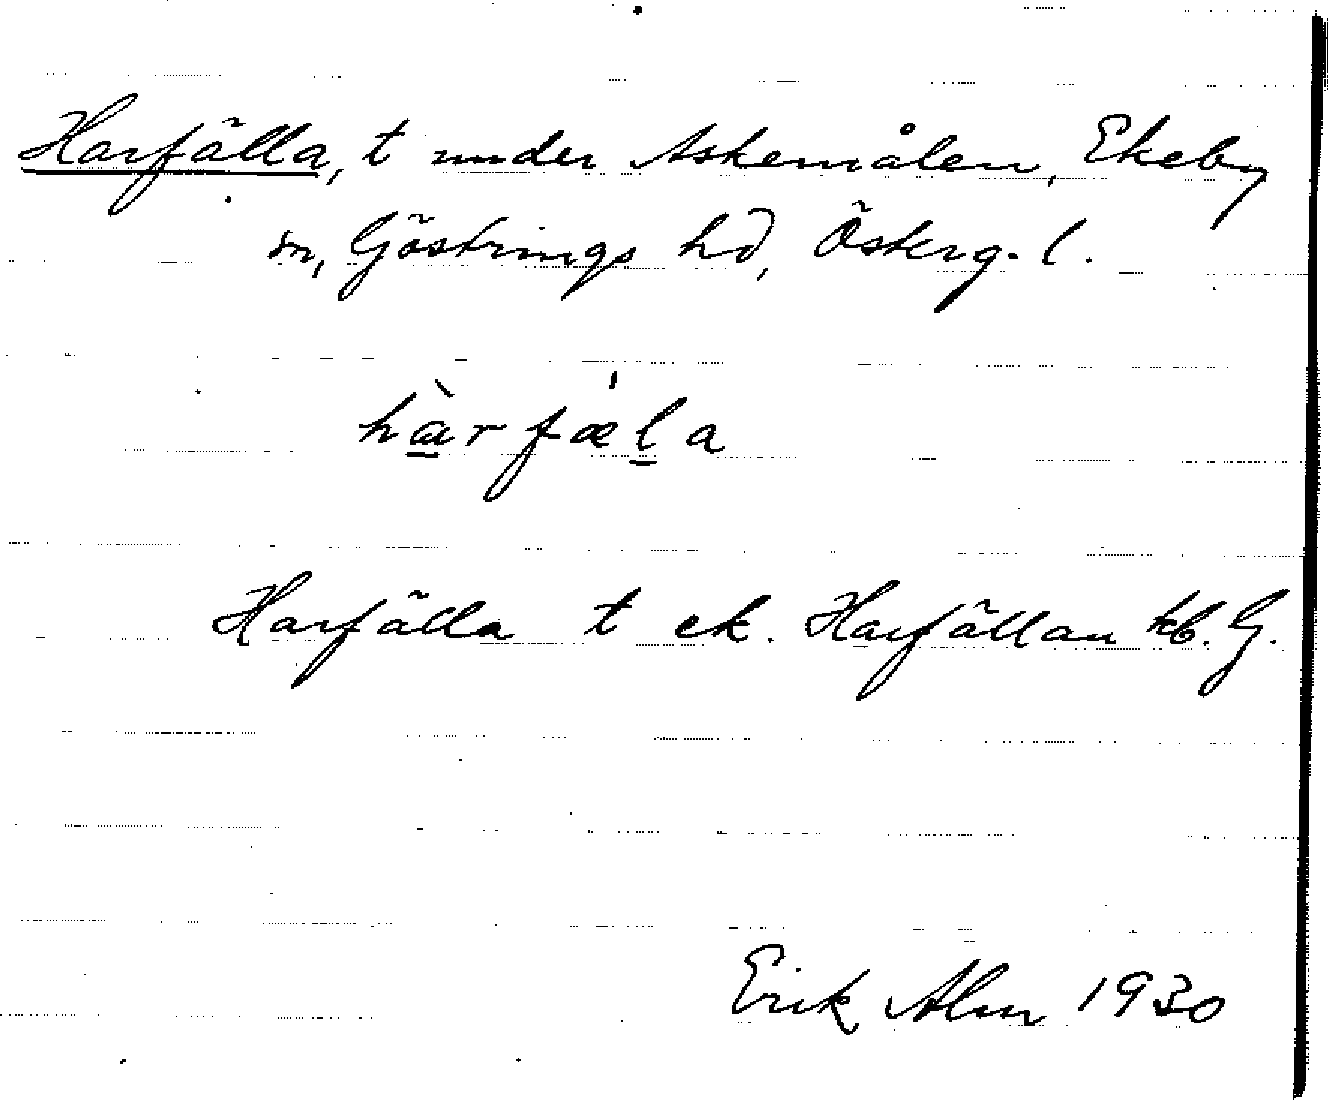 Harfälla, t under Askemålen, Ekeby
sn, Göstrings hd, Österg. l.
hàrfæ̍la
Harfälla t ek. Harfällan kb. G.
Erik Alm 1930